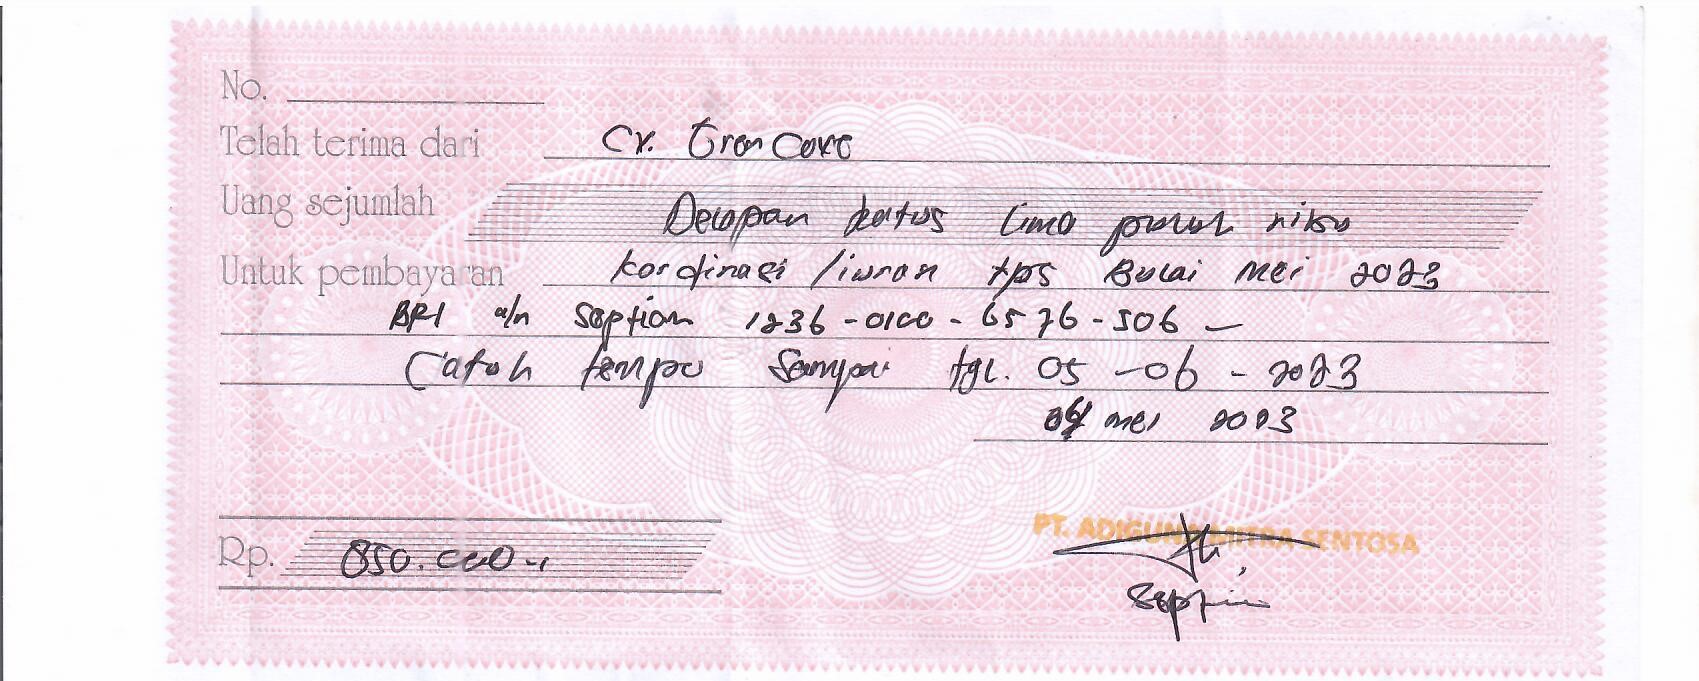 No.
Telah terima dari CV.
Uang sejumlah Delapan Ratus lima puluh ribu
Untuk pembayaran kordinasi / iuran tps Bulai Mei 2023
BRI a/n Septian 1236-0100-6576-506 -
Jatuh tempo Sampai tgl. 05-06-2023
04 Mei 2023
PT. ADIGUNA MITRA SENTOSA
Rp. 850.000.-
Septian